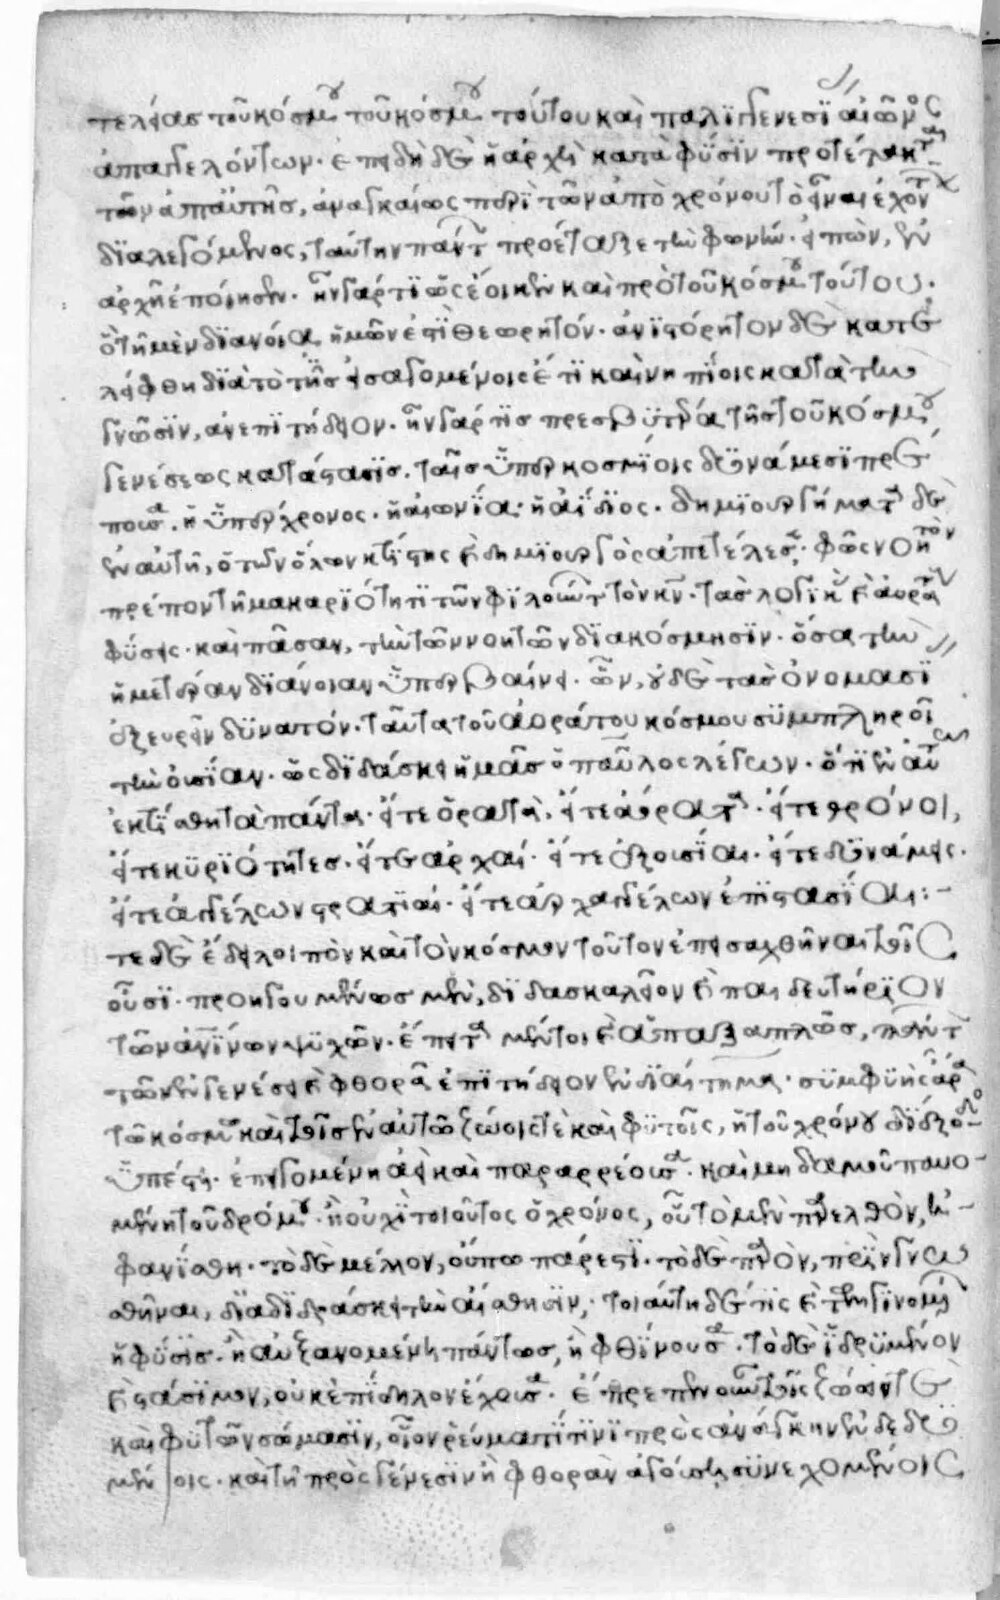 τελείας τοῦ κόσμου τοῦ κόσμου τούτου καὶ παλιγγενεσίαν αἰῶνος
ἀπαγγελόντων. ἐπειδὴ δὲ ἡ ἀρχὴ κατὰ φύσιν προτέτακται
τῶν ἀπ' αὐτῆς, ἀναγκαίως περὶ τῶν ἀπὸ χρόνου τὸ εἶναι ἐχόντων
διαλεγόμενος, ταύτην πάντων προέταξε τὴν φωνήν. εἰπὼν, ἐν
ἀρχῇ ἐποίησεν. ἦν γάρ τι ὡς ἔοικεν καὶ πρὸ τοῦ κόσμου τούτου.
ὃ τῇ μὲν διανοίᾳ ἡμῶν ἐστὶ θεωρητόν. ἀνιστόρητον δὲ κατε
λείφθη διὰ τὸ τῆς εἰσαγομένοις ἔτι καὶ νηπίοις κατὰ τὴν
γνῶσιν, ἀνεπιτήδειον. ἦν γάρ τις πρεσβυτέρα τῆς τοῦ κόσμου
γενέσεως κατάστασις. ταῖς ὑπερκοσμίοις δυνάμεσι πρέ
πουσα. ἡ ὑπέρχρονος. ἡ αἰωνία. ἡ ἀΐδιος. δημιουργήματα δὲ
ἐν αὐτῇ, ὁ τῶν ὅλων κτίστης καὶ δημιουργὸς ἀπετέλεσε. φῶς νοητὸν
πρέπον τῇ μακαριότητι τῶν φιλούντων τὸν κν. τὰς λογικὰς καὶ ἀοράτους
φύσεις. καὶ πᾶσαν, τὴν τῶν νοητῶν διακόσμησιν. ὅσα τὴν
ἡμετέραν διάνοιαν ὑπερβαίνει. ὧν, οὐδὲ τὰς ὀνομασί
ἐξευρεῖν δυνατόν. ταῦτα τοῦ ἀοράτου κόσμου συμπληροῖ
τὴν οὐσίαν. ὡς διδάσκει ἡμᾶς ὁ παῦλος λέγων. ὅτι ἐν αὐτῷ
ἐκτίσθη τὰ πάντα. εἴτε ὁρατὰ. εἴτε ἀόρατα. εἴτε θρόνοι,
εἴτε κυριότητες. εἴτε ἀρχαί. εἴτε ἐξουσίαι. εἴτε δυνάμεις.
εἴτε ἀγγέλων στρατιαί. εἴτε ἀρχαγγέλων ἐπιστασίαι:-
τε δὲ ἔδει λοιπὸν καὶ τὸν κόσμον τοῦτον ἐπεισαχθῆναι τοῖς
οὖσι. προηγουμένως μὲν, διδασκαλεῖον καὶ παιδευτήριον
τῶν ἀνίνων ψυχῶν. ἔπειτα μέντοι καὶ ἁπαξαπλῶς, πάντων
τῶν ἐν γενέσει καὶ φθορᾷ ἐπιτήδειον ἐνδιαίτημα. συμφυὴς ἄρα
τῷ κόσμῳ καὶ τοῖς ἐν αὐτῷ ζώοις τὲ καὶ φυτοῖς, ἡ τοῦ χρόνου διέξοδος
ὑπέστη. ἐπειγομένη ἀεὶ καὶ παραρρέουσα. καὶ μηδαμοῦ παυο-
μένη τοῦ δρόμου. ἢ οὐχὶ τοιοῦτος ὁ χρόνος, οὗ τὸ μὲν παρελθὸν, ἠ-
φανίσθη. τὸ δὲ μέλλον, οὔπω πάρεστι. τὸ δὲ παρὸν, πρὶν γνω
σθῆναι, διαδιδράσκει τὴν αἴσθησιν; τοιαύτη δέ τις καὶ τῶν γινομένων
ἡ φύσις. ἢ αὐξανομένη πάντως, ἢ φθίνουσα. τὸ δὲ ἱδρυμένον
καὶ στάσιμον, οὐκ ἐπίδηλον ἔχουσα. ἔπρεπεν οὖν τοῖς ζώων τὲ
καὶ φυτῶν σώμασιν, οἷον ῥεύματί τινι πρὸς ἀνάγκην ἐνδεδε
μένοις. καὶ τῇ πρὸς γένεσιν ἢ φθορὰν ἀγούσῃ συνεχομένοις